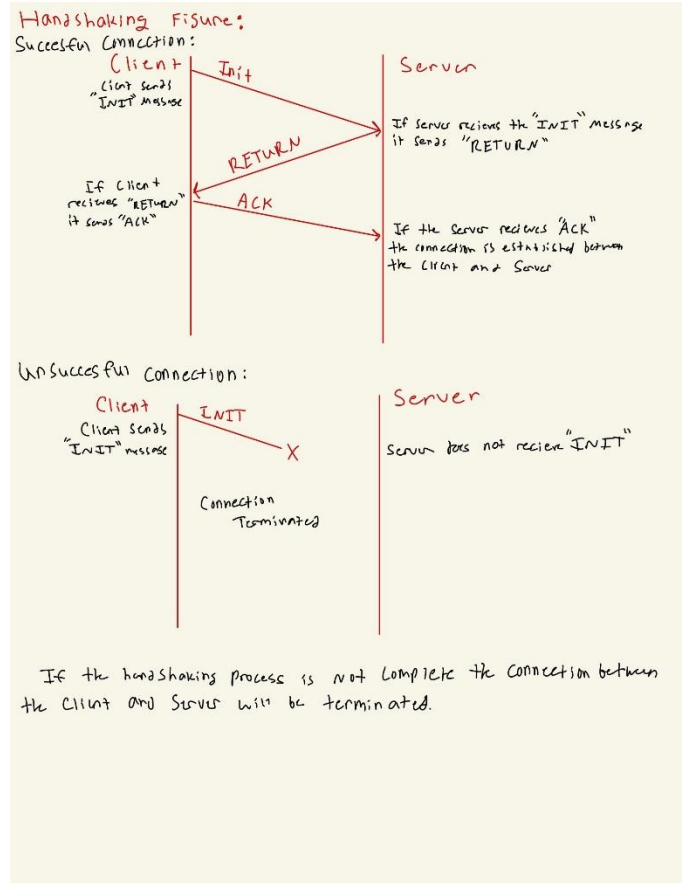 Handshaking Figure:
Succesful Connection:
Client
Init
Server
Client sends
"INIT" Message
If server recieves the "INIT" message
it sends "RETURN"
RETURN
If Client
recieves "RETURN"
it sends "ACK"
ACK
If the Server recieves "ACK"
the connection is established between
the Client and Server
Unsuccesful Connection:
Client
INIT
Server
Client sends
"INIT" message
X
Server does not recieve "INIT"
Connection
Terminated
If the handshaking process is not complete the connection between
the Client and Server will be terminated.